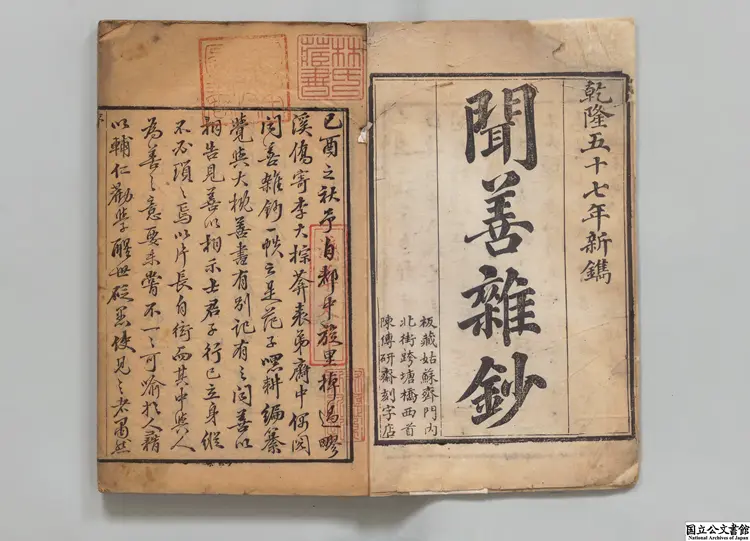 乾隆五十七年新鐫
聞善雜鈔
板藏姑蘇齊門內
北街跨塘橋西首
陳傳研齋刻字店
林氏藏書
己酉之秋予自郡中旋里掉過
溪僑寄李大棕莽表弟齋中偶閱
聞善雜鈔一帙云是范子嘿耕編纂
覺與大概善書有別記有之聞善以
相告見善以相示士君子行己立身縱
不必瑣〻焉以片長自衒而其中與人
為善之意要未嘗不一一可喻於人藉
以輔仁勸學醒世砭愚使見之者
国立公文書館
National Archives of Japan